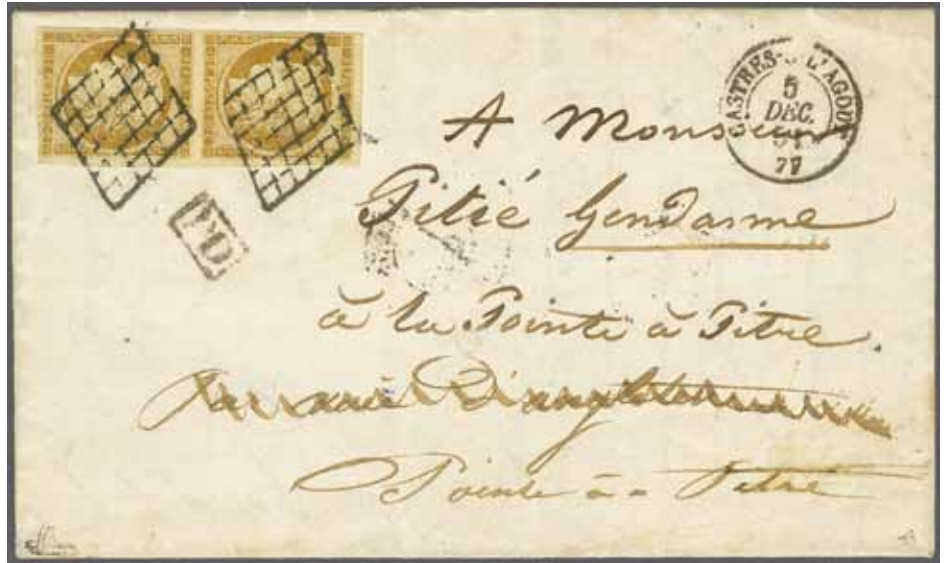 CASTRES-S-L'AGOUT
5
DEC.
51
77
PD
A Monsieur
Pitié Gendarme
à la Pointe à Pitre.
Pointe à Pitre